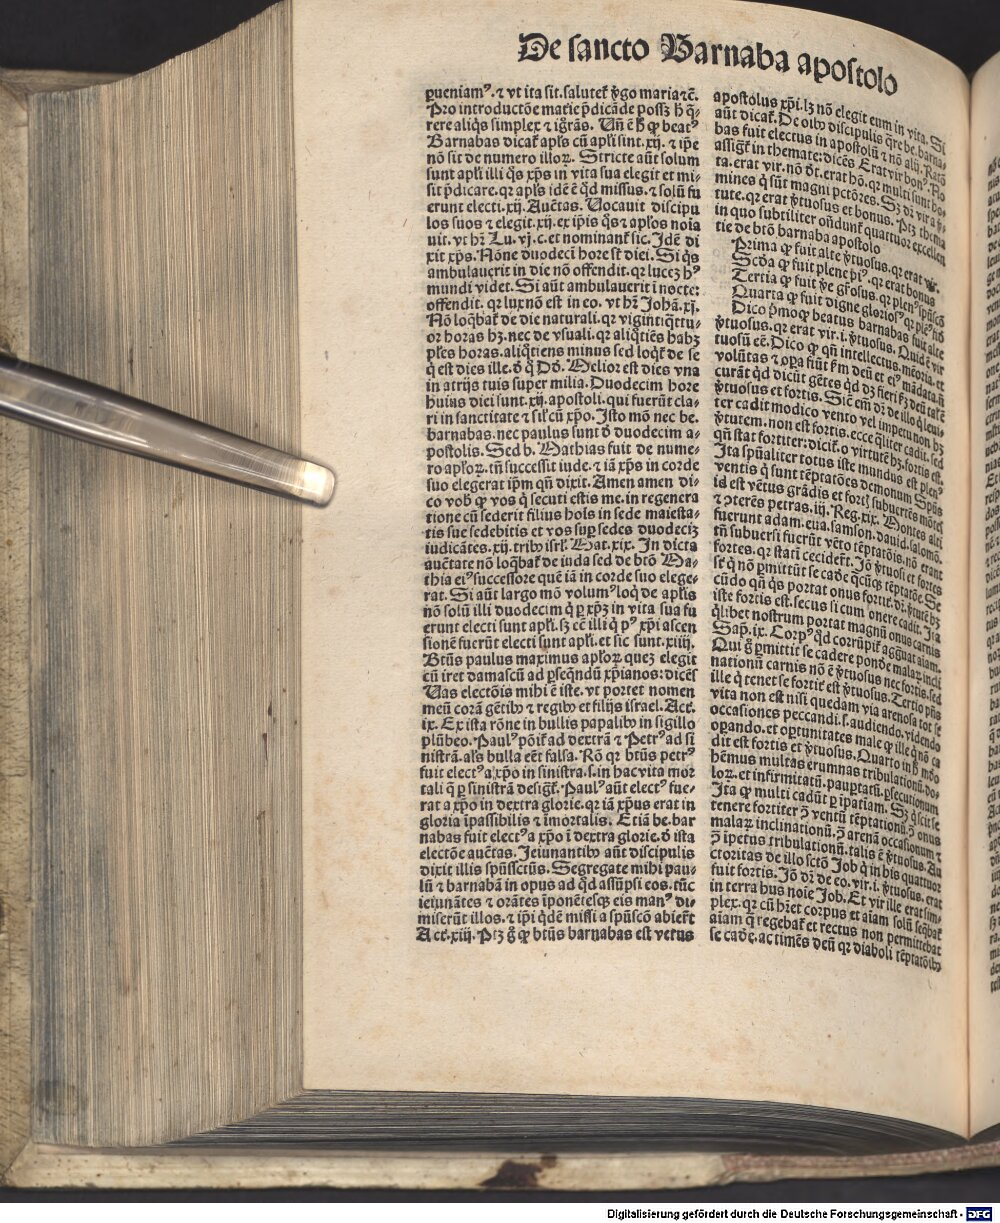 De sancto Barnaba apostolo
ꝑueniamꝰ. ⁊ vt ita sit. salutet̃ ꝟgo maria ⁊c̃.
Pro introductõe matie p̃dicãde possʒ h̊ q̃-
rere aliq̃s simplex ⁊ igr̃ãs. Uñ ẽ h̊ ꝙ beatꝰ
Barnabas dicat̃ apl̃s cũ apl̃i sint .xij. ⁊ ip̃e
nõ sit de numero illoꝝ. Stricte aũt solum
sunt apl̃i illi q̃s xp̃s in vita sua elegit et mi-
sit p̃dicare. qꝛ apl̃s idẽ ẽ qd̃ missus. ⁊ solũ fu
erunt electi .xij. Auc̃tas. Uocauit discipu
los suos ⁊ elegit .xij. ex ip̃is q̃s ⁊ apl̃os noĩa
uit. vt hr̃ Lu. vj. c. et nominant̃ sic. Idẽ di
xit xp̃s. Nõne duodeci hore st̃ diei. Si q̃s
ambulauerit in die nõ offendit. qꝛ lucez hꝰ
mundi videt. Si aũt ambulauerit ĩ nocte:
offendit. qꝛ lux nõ est in eo. vt hr̃ Johã. xj.
Nõ loq̃bat̃ de die naturali. qꝛ viginti q̃ttu-
or horas hʒ. nec de vsuali. qꝛ aliq̃tiẽs habʒ
pl̃es horas. aliq̃tiens minus sed loq̃t̃ de se
q̃ est dies ille. ð q̃ Dð. Melior est dies vna
in atrijs tuis super milia. Duodecim hore
huius diei sunt .xij. apostoli. qui fuerũt cla-
ri in sanctitate ⁊ sil̃ cũ xp̃o. Isto mõ nec be.
barnabas. nec paulus sunt ð duodecim a-
postolis. Sed b. Mathias fuit de nume-
ro apl̃oꝝ. tñ successit iude. ⁊ iã xp̃s in corde
suo elegerat ip̃m qñ dixit. Amen amen di-
co vob̃ ꝙ vos q̃ secuti estis me. in regenera
tione cũ sederit filius hoĩs in sede maiesta-
tis sue sedebitis et vos suꝑ sedes duodeciʒ
iudicãtes .xij. tribꝰ isrl̃. Mat. xix. In dicta
auc̃tate nõ loq̃bat̃ de iuda sed de btõ Ma-
thia eiꝰ successore quẽ iã in corde suo elege-
rat. Si aũt largo mõ volumꝰ loq̃ de apl̃is
nõ solũ illi duodecim q̃ ꝑ xp̃ʒ in vita sua fu
erunt electi sunt apl̃i. sʒ eẽ illi q̃ pꝰ xp̃i ascen
sionẽ fuerũt electi sunt apl̃i. et sic sunt .xiiij.
Btũs paulus maximus apl̃oꝝ queʒ elegit
cũ iret damascũ ad ꝑseq̃ndũ xp̃ianos: dicẽs
Uas electõis mihi ẽ iste. vt portet nomen
meũ corã gẽtibꝰ ⁊ regibꝰ et filijs israel. Act.
ix. Ex ista rõne in bullis papalibꝰ in sigillo
plũbeo. Paulꝰ põit̃ ad dextrã ⁊ Petrꝰ ad si
nistrã. al̃s bulla eẽt falsa. Rõ qꝛ btũs petrꝰ
fuit electꝰ a xp̃o in sinistra. s. in hac vita mor
tali q̃ ꝑ sinistrã design̄t̃. Paulꝰ aũt electꝰ fue-
rat a xp̃o in dextra glorie. qꝛ iã xp̃us erat in
gloria ĩpassibilis ⁊ ĩmortalis. Etiã be. bar
nabas fuit electꝰ a xp̃o ĩ dextra glorie. ð ista
electõe auc̃tas. Jeiunantibꝰ aũt discipulis
dixit illis spũssctũs. Segregate mihi pau-
lũ ⁊ barnabã in opus ad qd̃ assũpsi eos. tũc
ieiunãtes ⁊ orãtes ĩponẽtesqʒ eis manꝰ di-
miserũt illos. ⁊ ip̃i q̃dẽ missi a spũscõ abier̃t
Act. xiij. Ptʒ g̊ ꝙ btũs barnabas est verus
apostolus xp̃i. lʒ nõ elegit eum in vita. Si
aũt dicat̃. De oĩbꝰ discipulis q̃re be. barna-
bas fuit electus in apostolũ ⁊ nõ alij. Ratõ
assign̄t̃ in themate: dicẽs Erat vir bonꝰ. No
ta. erat vir. nõ dr̃. erat hõ. qꝛ multi sunt ho-
mines q̃ sũt magni pctõres. Sʒ dr̃ vir a ꝟ-
tute. qꝛ erat ꝟtuosus et bonus. Ptʒ thema
in quo subtiliter oñdunt̃ quattuor excellen
tie de btõ barnaba apostolo
Prima ꝙ fuit alte ꝟtuosus. qꝛ erat vir.
Scða ꝙ fuit plene bꝰ. qꝛ erat bonus
Tertia ꝙ fuit ꝟe gr̃osus. qꝛ plenꝰ spũscõ
Quarta ꝙ fuit digne gloriosꝰ qꝛ plẽꝰ fið
Dico p̃mo ꝙ beatus barnabas fuit alte
ꝟtuosus. qꝛ erat vir .i. ꝟtuosus. Quid ẽ vir
tuosũ eẽ. Dico ꝙ qñ intellectus. mẽoria. et
volũtas ⁊ oꝑa fiũt ẜm deũ et eiꝰ mãdata. ñ
curãt qd̃ dicũt gẽtes qd̃ dʒ fieri ẜʒ deũ tal̃ ẽ
ꝟtuosus et fortis. Sic̃ em̃ dr̃ de illo q̃ leui-
ter cadit modico vento vel impetu non hʒ
ꝟtutem. non est fortis. ecce q̃liter cadit. sed
qñ stat fortiter: dicit̃. o virtutẽ hʒ. fortis est.
Ita spũaliter totus iste mundus est plenꝰ
ventis q̃ sunt tẽptatões demonum Spũs
id est vẽtus grãdis et fort̃ subuertẽs mõtes
⁊ ↄterẽs petras. iij. Reg. xix. Montes alti
fuerunt adam. eua. samson. dauid. salomõ.
tñ subuersi fuerũt vẽto tẽptatõis. nõ erant
fortes. qꝛ statĩ cecider̃t. Jõ ꝟtuosi et fortes
se q̃ nõ ꝑmittũt se caðe q̃cũqʒ tẽptatõe. Se
cũdo qñ q̃s portat onus fortit̃. dr̃. ꝟtutẽ hʒ
iste fortis est. secus si cum onere cadit. Ita
q̃libet nostrum portat magnũ onus carnis
Sap. ix. Corpꝰ qd̃ corrũpit̃ aggñuat aĩam.
Qui g̊ ꝑmittit se cadere ponðe malaꝝ incli
nationũ carnis nõ ẽ ꝟtuosus nec fortis. sed
ille q̃ tenet se fortit̃ est ꝟtuosus. Tertio pñs
vita non est nisi quedam via arenosa tot se
occasiones peccandi. s. audiendo. videndo
oꝑando. et oꝑtunitates male ꝙ ille q̃ nõ ca
dit est fortis et ꝟtuosus. Quarto in h̊ mũo
hẽmus multas erumnas tribulationũ. do-
loꝝ. et infirmitatũ. pauꝑtatũ. ꝑsecutionum
Ita ꝙ multi cadũt ꝑ ĩpatiam. Sʒ q̃ scit se
tenere fortiter ↄ̃ ventũ tẽptationũ. ↄ̃ onus
malaꝝ inclinationũ. ↄ̃ arenã occasionum ⁊
ↄ̃ ĩpetus tribulationũ. talis ẽ ꝟtuosus. Au
ctoritas de illo sctõ Job q̃ in his quattuor
fuit fortis. Jõ dr̃ de eo. vir .i. ꝟtuosus. erat
in terra hus noĩe Job. Et vir ille erat sim-
plex. qꝛ cũ hr̃et corpus et aĩam solũ seq̃bat̃
aĩam q̃ regebat̃ et rectus non permittebat
se caðe. ac timẽs deũ qꝛ diaboli tẽptatõibꝰ
Digitalisierung gefördert durch die Deutsche Forschungsgemeinschaft - DFG